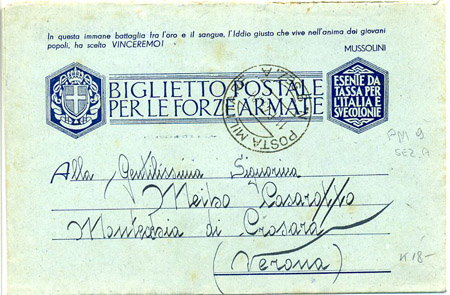 In questa immane battaglia fra l'oro e il sangue, l'Iddio giusto che vive nell'anima dei giovani
popoli, ha scelto VINCEREMO!
MUSSOLINI
BIGLIETTO POSTALE
PER LE FORZE ARMATE
ESENTE DA
TASSA PER
L'ITALIA E
SUE COLONIE
POSTA MILI
PM 9
SEZ. A
Alla Gentilissima Signorina
Casarotto
di Crosara
(Verona)
18-